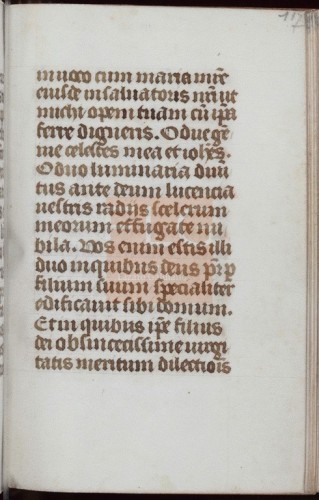 117
inuoco cum maria mr̄e
eiusdē saluatoris nr̄i ut
michi opem tuam cū ip̄a
ferre digneris. O due gē
me celestes mea et ioh̄es.
O duo luminaria diui
tus ante deum lucencia
uestris radijs scelerum
meorum effugate nu
bila. Vos enim estis illi
duo in quibus deus pr̄ p
filium suum specialiter
edificauit sibi domum.
Et in quibus ip̄e filius
dei ob sincerissime uirgi
tatis meritum dilectiōis